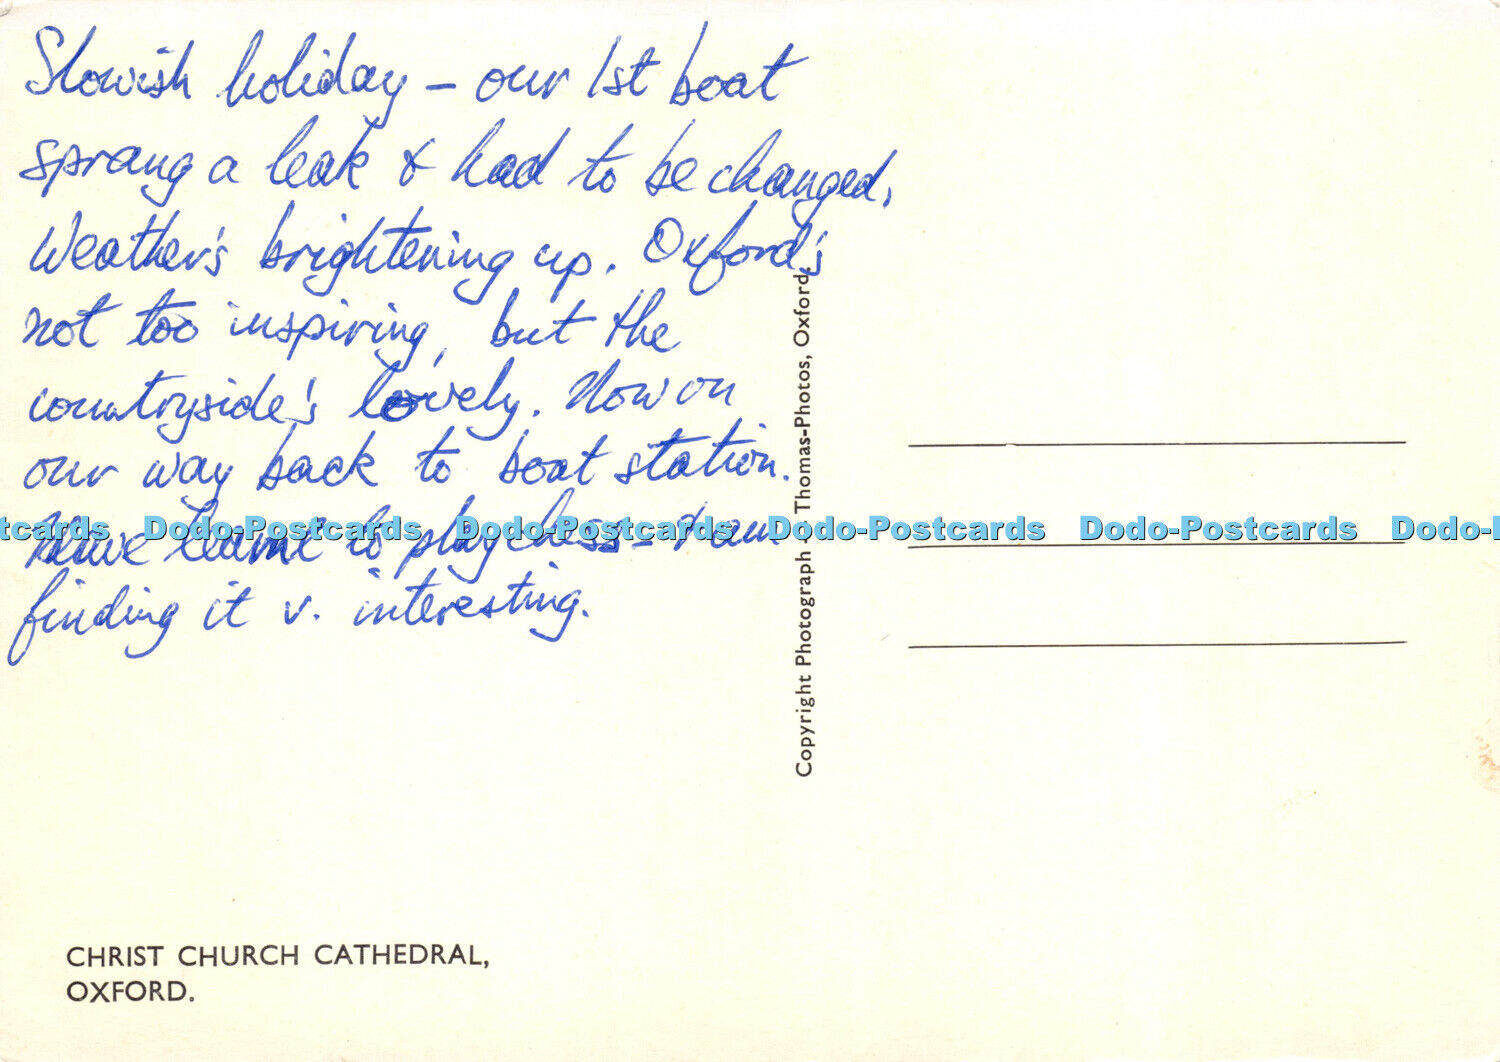 Slowish holiday – our 1st boat
sprang a leak & had to be changed.
Weather's brightening up. Oxford's
not too inspiring, but the
countryside's lovely. Now on
our way back to boat station.
Have learnt to play chess – &
finding it v. interesting.
Copyright Photograph Thomas-Photos, Oxford.
Dodo-Postcards Dodo-Postcards Dodo-Postcards Dodo-Postcards
CHRIST CHURCH CATHEDRAL,
OXFORD.